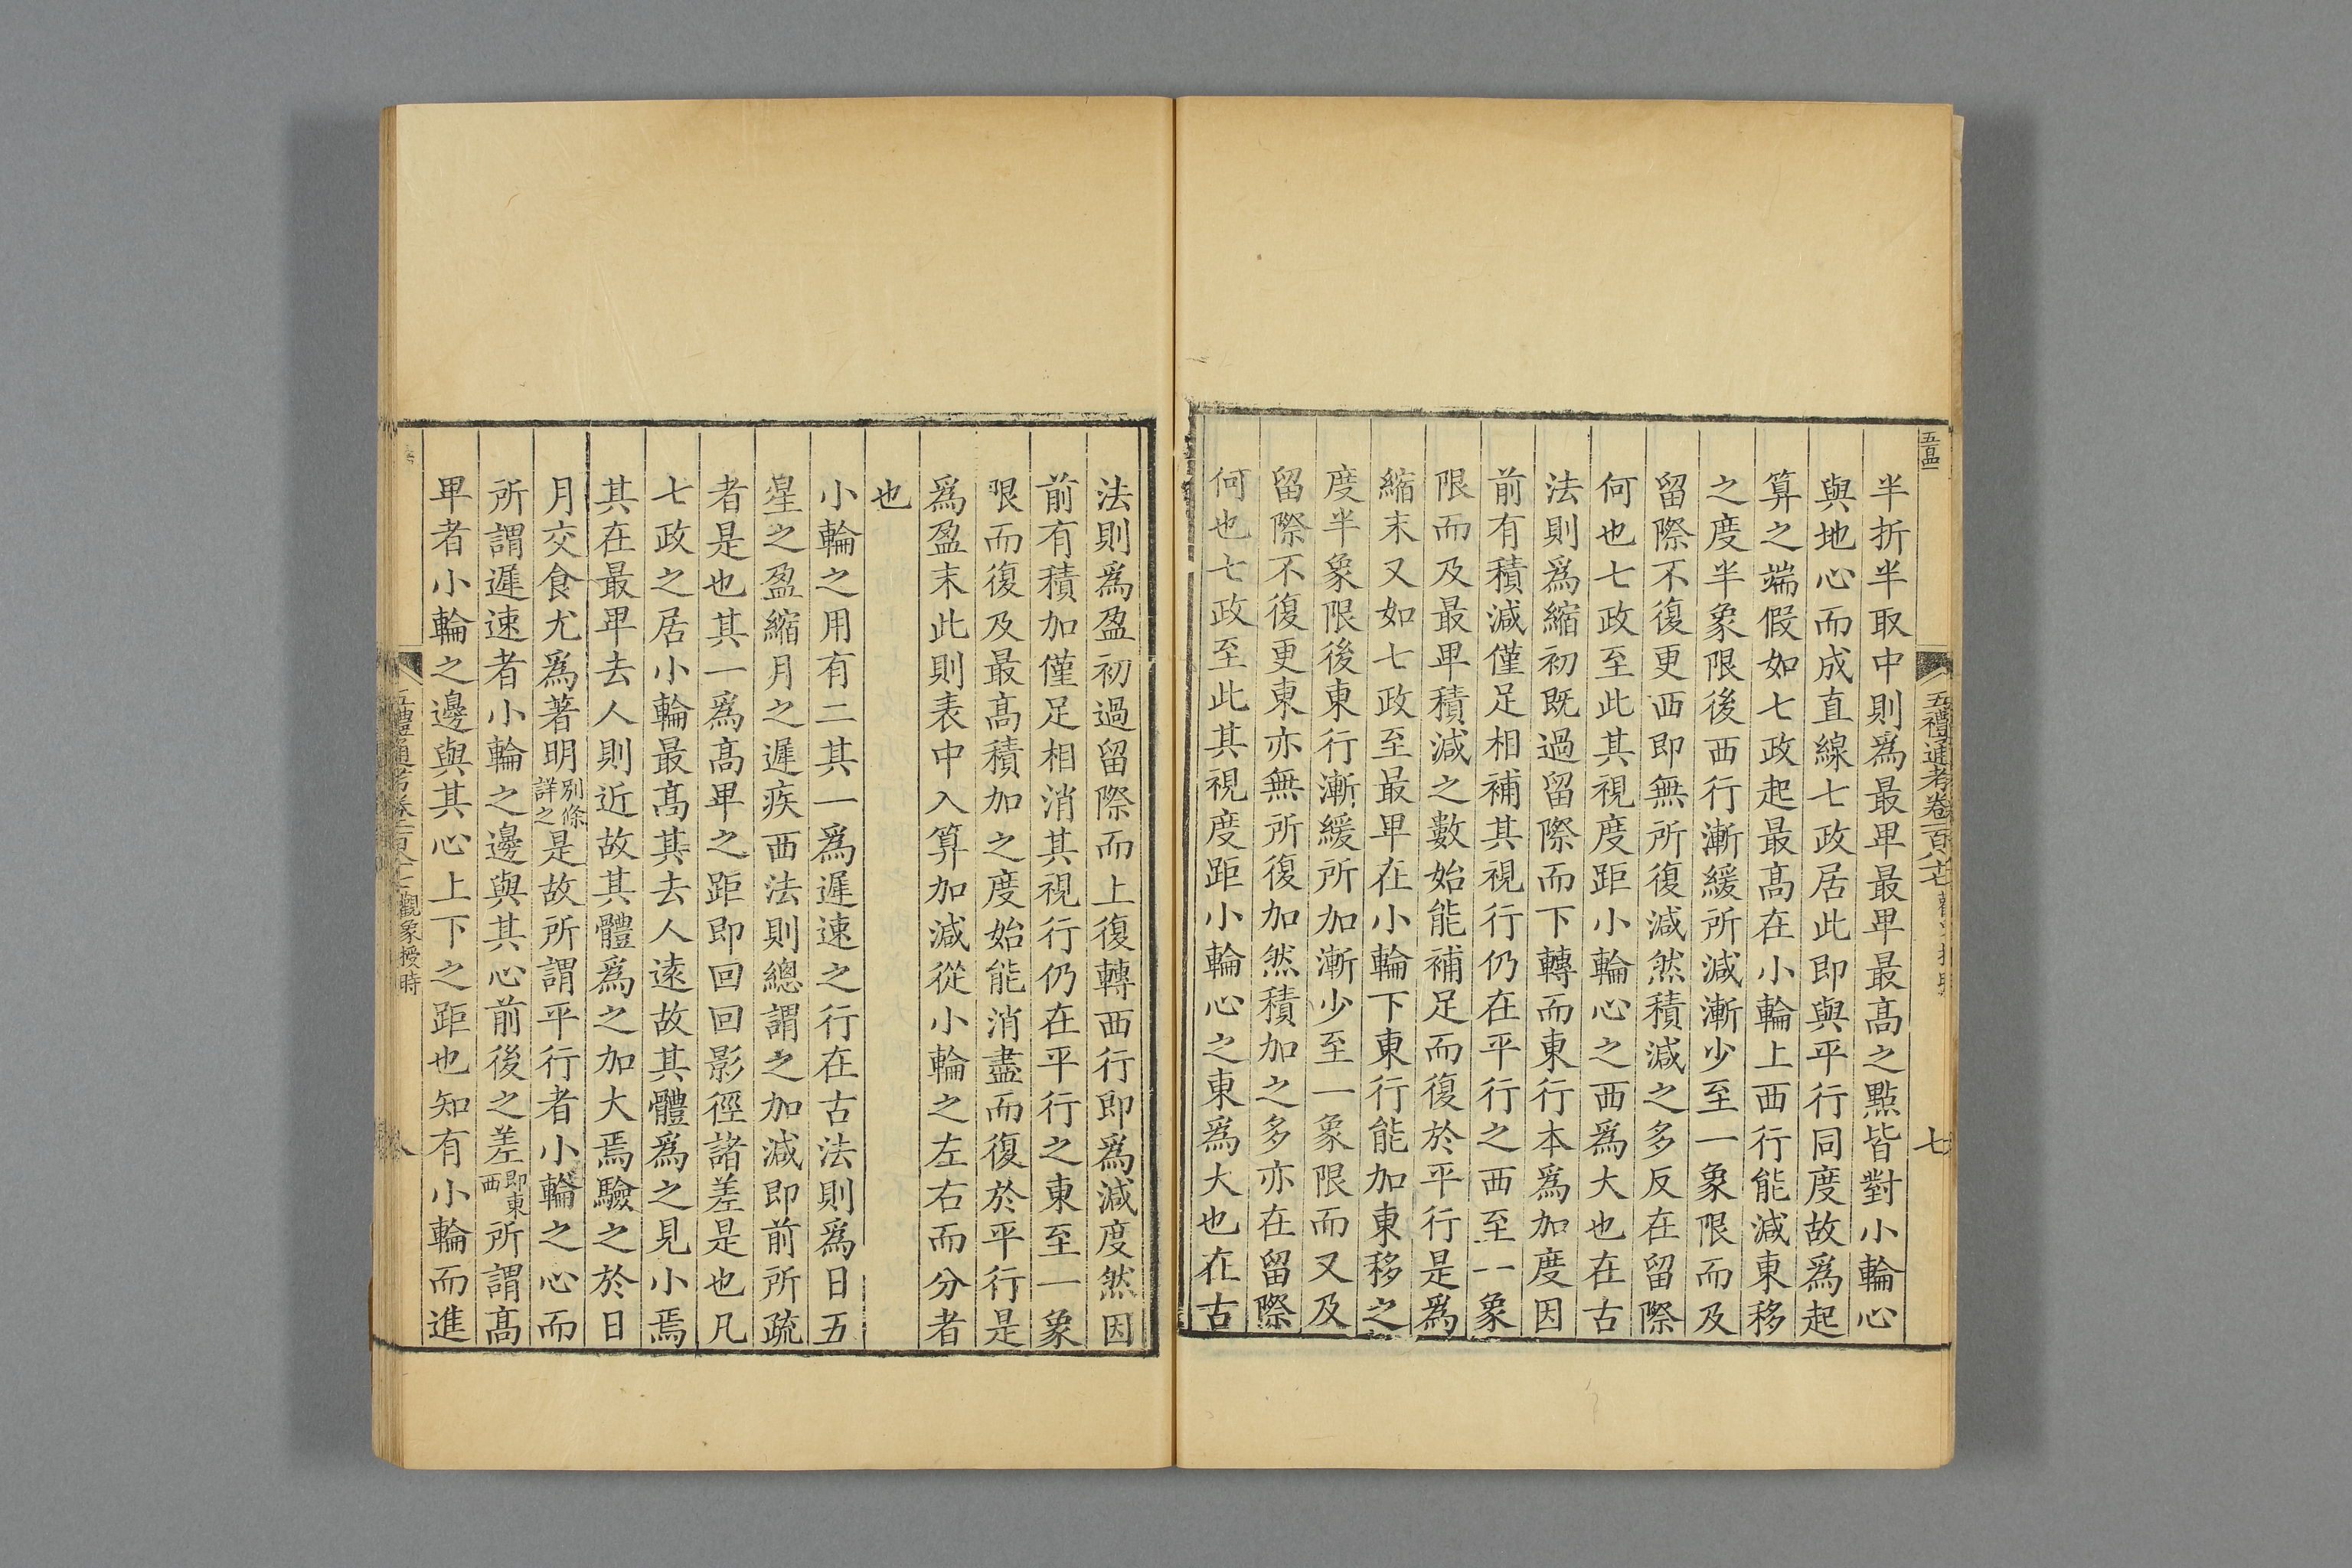 五禮通考卷一百八七
七
半折半取中則爲最卑最卑最高之點皆對小輪心
與地心而成直線七政居此即與平行同度故爲起
算之端假如七政起最高在小輪上西行能減東移
之度半象限後西行漸緩所減漸少至一象限而及
留際不復更西即無所復減然積減之多反在留際
何也七政至此其視度距小輪心之西爲大也在古
法則爲縮初既過留際而下轉而東行本爲加度因
前有積減僅足相補其視行仍在平行之西至一象
限而及最卑積減之數始能補足而復於平行是爲
縮末又如七政至最卑在小輪下東行能加東移之
度半象限後東行漸緩所加漸少至一象限而又及
留際不復更東亦無所復加然積加之多亦在留際
何也七政至此其視度距小輪心之東爲大也在古
法則爲盈初過留際而上復轉西行即爲減度然因
前有積加僅足相消其視行仍在平行之東至一象
限而復及最高積加之度始能消盡而復於平行是
爲盈末此則表中入算加減從小輪之左右而分者
也
小輪之用有二其一爲遲速之行在古法則爲日五
星之盈縮月之遲疾西法則總謂之加減即前所疏
者是也其一爲高卑之距即回回影徑諸差是也凡
七政之居小輪最高其去人遠故其體爲之見小焉
其在最卑去人則近故其體爲之加大焉驗之於日
月交食尤爲著明別條詳之是故所謂平行者小輪之心而
所謂遲速者小輪之邊與其心前後之差即東西所謂高
卑者小輪之邊與其心上下之距也知有小輪而進
觀象授時
八